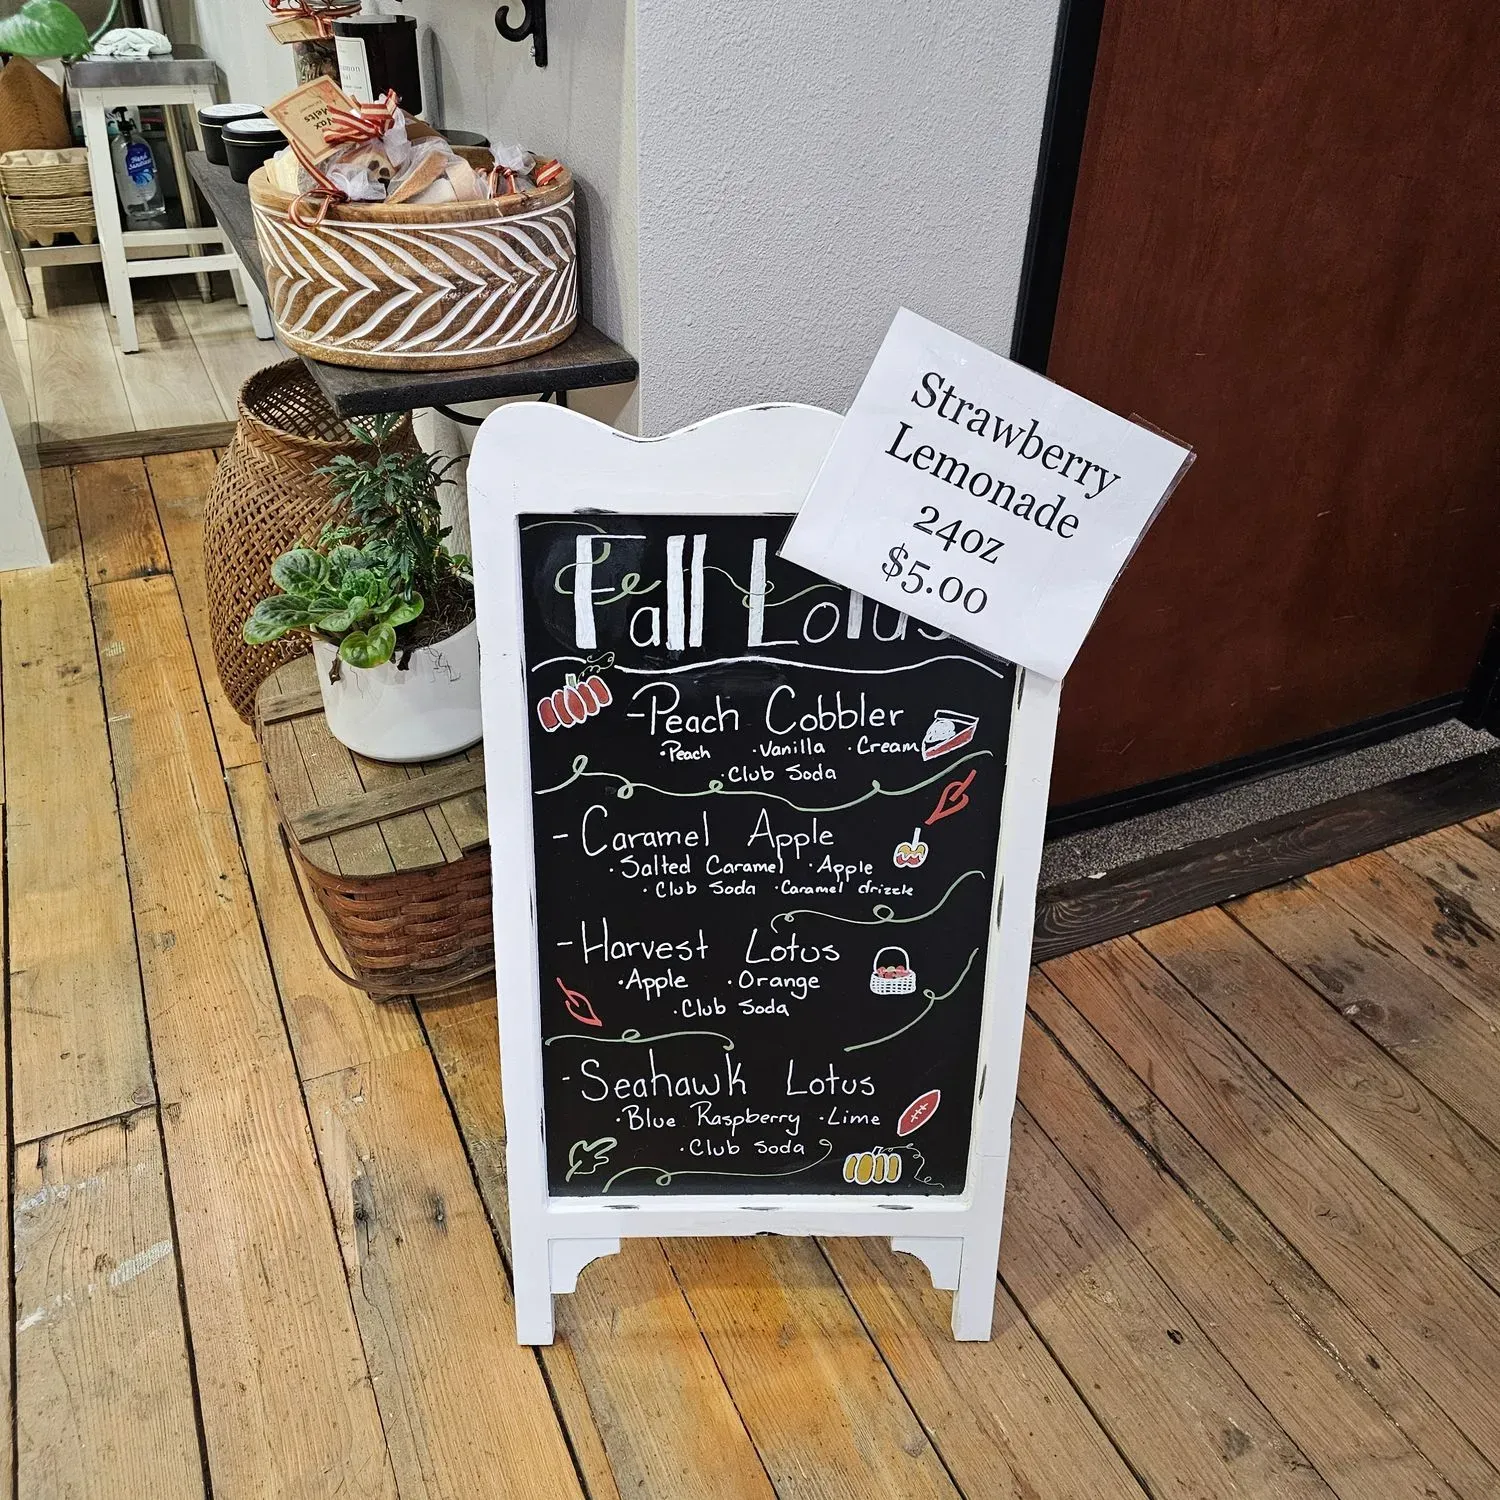 Strawberry
Lemonade
24oz
$5.00
Fall Lotus
-Peach Cobbler
·Peach ·Vanilla ·Cream
·Club Soda
-Caramel Apple
·Salted Caramel ·Apple
·Club Soda ·Caramel drizzle
-Harvest Lotus
·Apple ·Orange
·Club Soda
-Seahawk Lotus
·Blue Raspberry ·Lime
·Club Soda
Wax
Melts
Hand
Sanitizer